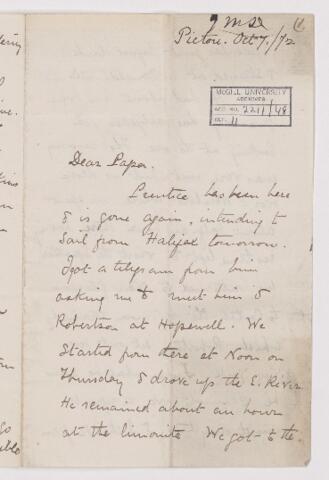 Pictou. Oct 7./72
McGILL UNIVERSITY
ARCHIVES
ACC. NO. 2211/48
REF. 11
Dear Papa.
Prentice has been here
& is gone again, intending to
sail from Halifax tomorrow.
I got a telegram from him
asking me to meet him &
Robertson at Hopewell. We
started from there at Noon on
Thursday & drove up the E. River
He remained about an hour
at the limonite We got to the